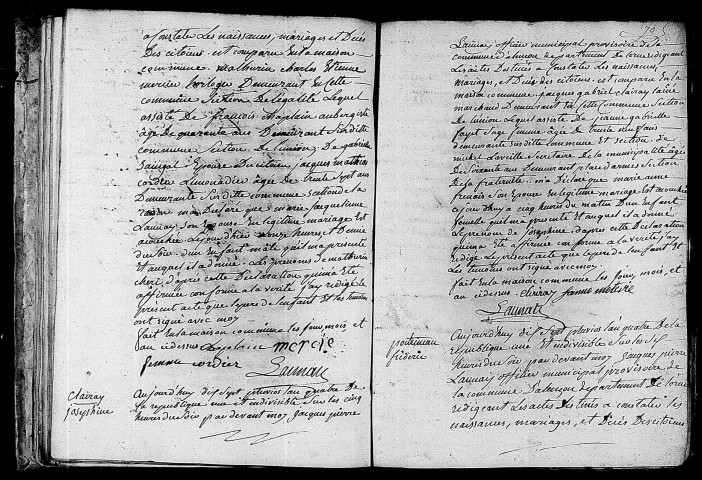 a constater les naissances, mariages et Décès
Des citoiens est comparu en la maison
commune Mathurin Charles Etienne
mercier horloger Demeurant en cette
commune Section De légalité Lequel
assisté De françois Chaplain aubergiste
âgé De quarante ans Demeurant Surditte
commune Section De lunion, De gabrielle
Epouse Ducitoien jaques mathieu
cordier Limonadier âgée De trente Sept ans
Demeurante Surditte commune section De la
raison ma Déclaré que marie jaqueline
Launay Son Epouse En legitime mariage Est
acouchée
Du Soir Dun Enfant mâle quil ma presenté
Et auquel il a donné Les prenoms De mathurin
cheri, D'après cette Déclaration quima Eté
affirmée conforme à la verité j'ay redigé le
present acte que le pere de lenfant Et les temoins
ont signé avec moy
fait En la maison commune les jour, mois et
an cidessus Chaplain mercié
femme cordier Launay
Clairay
josephine
Aujourd'huy dix Sept pluvios lan quatre De
la republique une et indivisible Sur les cinq
heures du Soir par devant moy Jacques pierre
79
Launay officier municipal provisoire de la
commune Dalençon departement De lorne redigeant
Les actes Destinés a Constater Les naissances,
mariages, et Décès des citoiens, est comparu En la
maison commune jacques gabriel clairay
marchand Demeurant En cette commune Section
De lunion Lequel assisté De jeanne gabrielle
fayet Sage femme âgée de trente neuf ans
demeurante Sur ditte commune et Section. De
michel Laville Secretaire De la municipalité âgé
De Soixante ans Demeurant place darmes Section
De la fraternité ma Déclaré que marie anne
frenais Son Epouse En legitime mariage Est acouchée
ajourd'huy a cinq heures du matin Dun Enfant
femelle quil ma presenté Et auquel il a donné
Le prenom de Josephine, dapres cette Declaration
quima Eté affirmée conforme a la verité j'ay
redigé Le present acte que le pere de l'enfant Et
Les temoins ont signé avec moy
fait En la maison commune les jour, mois, et
an cidessus. Clairay
Launay
frederic
Aujourdhuy dix Sept pluvios lan quatre De la
republique une Et indivisible Sur les Six
heures du Soir par devant moy Jacques pierre
Launay officier municipal provisoire de
la commune Dalençon departement De lorne
redigeant Les actes Destinés a constater les
naissances, mariages, et Décès Des citoiens